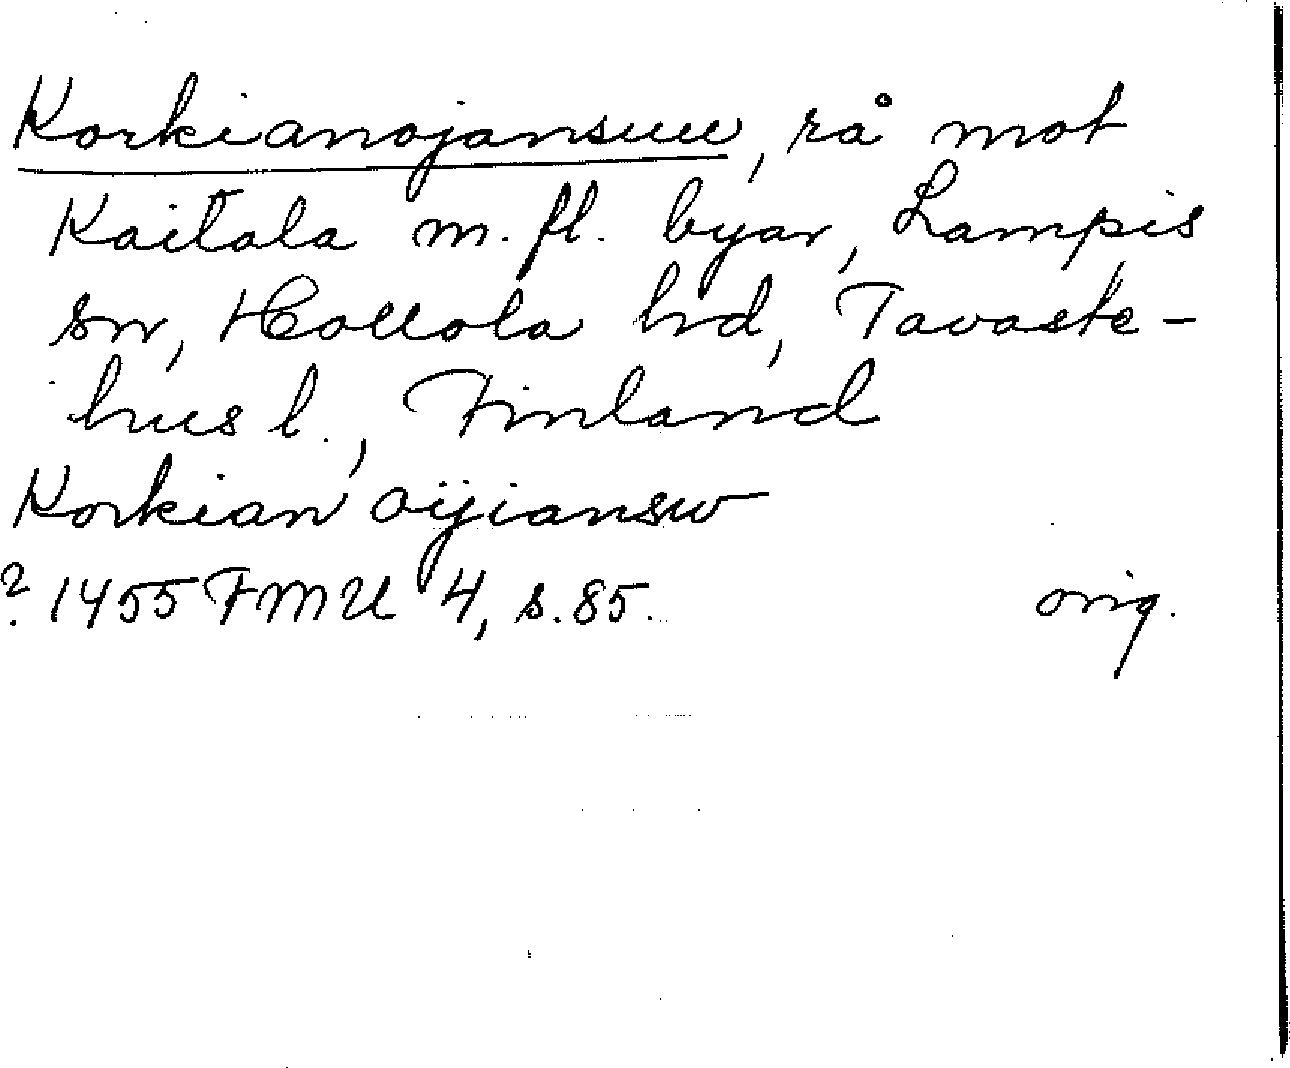 Korkianojansuu, rå mot
Kaitala m. fl. byar, Lampis
sn, Hollola hd, Tavaste-
hus l., Finland
Korkian oijiansw
? 1455 FMU 4, s. 85.
orig.